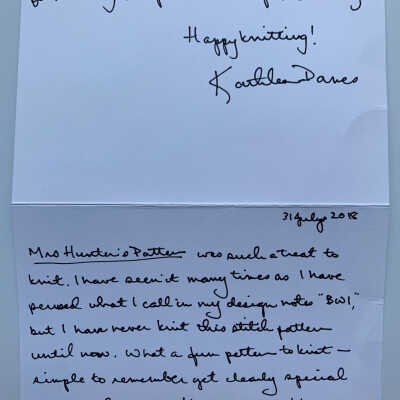 Happy knitting!
Kathleen Dames
31 July 2018
Mrs Hunter's Pattern was such a treat to
knit. I have seen it many times as I have
perused what I call in my design notes "BWI,"
but I have never knit this stitch pattern
until now. What a fun pattern to knit —
simple to remember yet clearly special